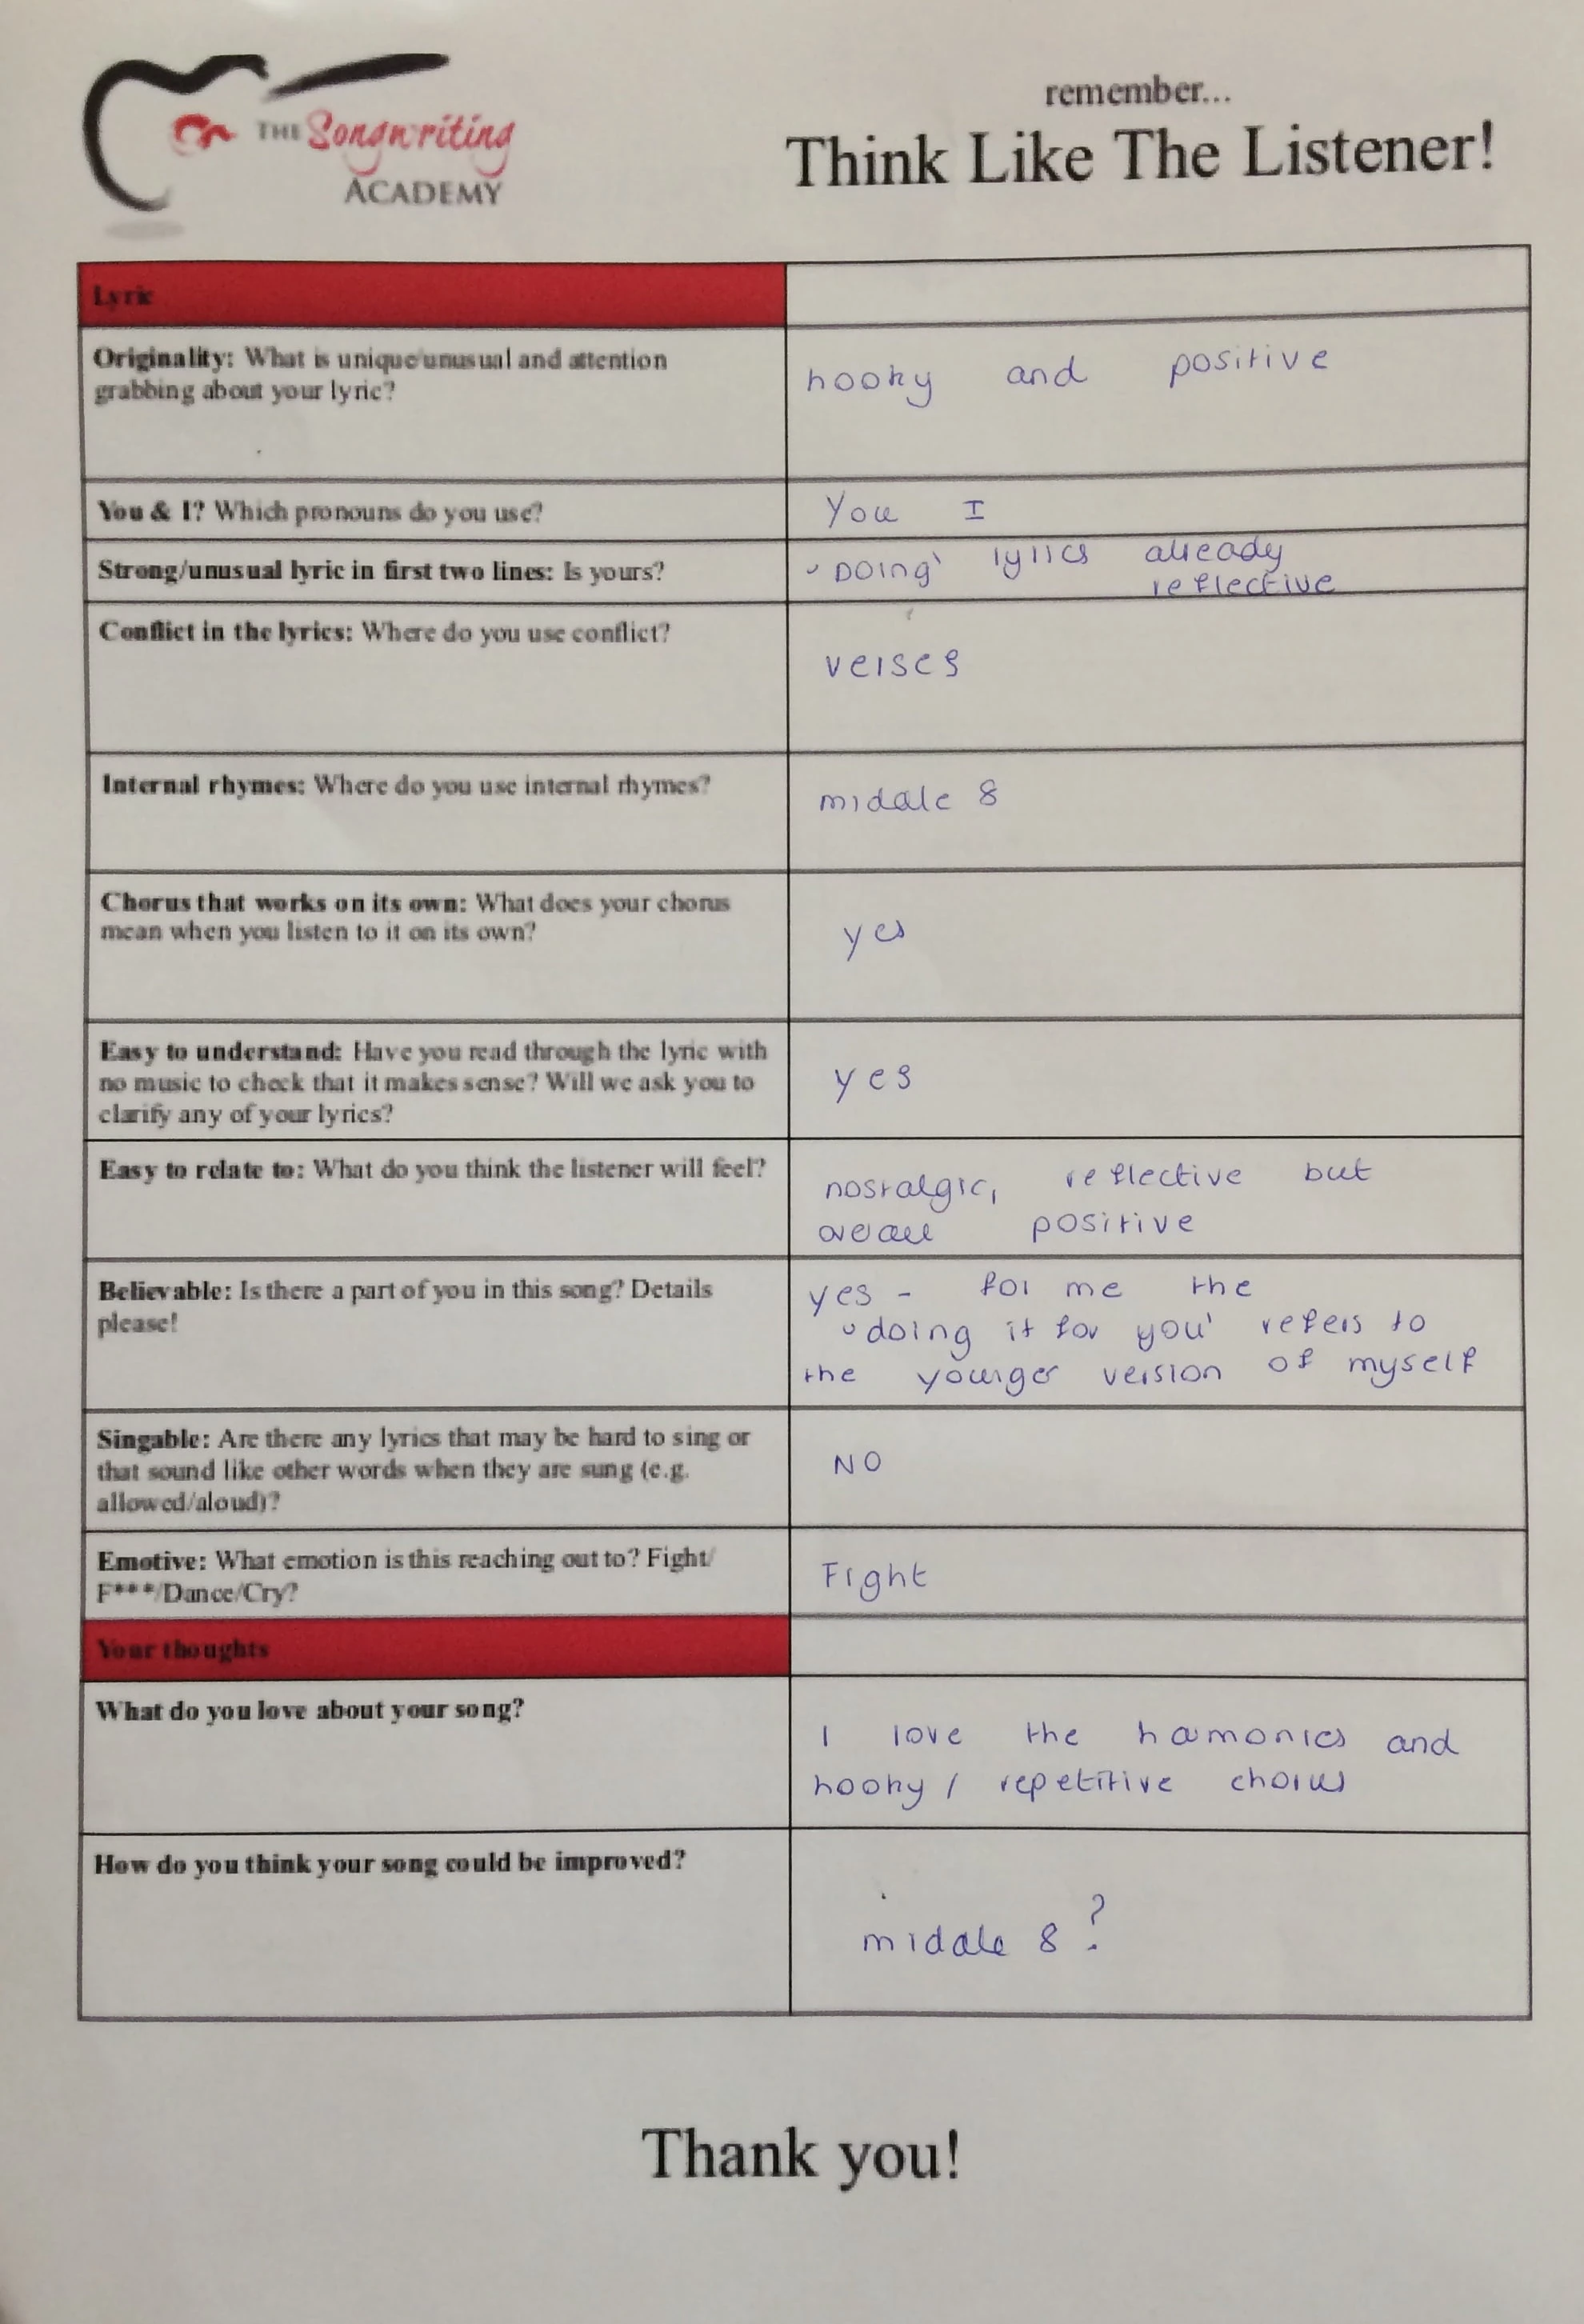 remember...
THE Songwriting
ACADEMY
Think Like The Listener!
Lyric
Originality: What is unique/unusual and attention
grabbing about your lyric?
hooky and positive
You & I? Which pronouns do you use?
You I
Strong/unusual lyric in first two lines: Is yours?
'Doing' lyrics already
reflective
Conflict in the lyrics: Where do you use conflict?
verses
Internal rhymes: Where do you use internal rhymes?
middle 8
Chorus that works on its own: What does your chorus
mean when you listen to it on its own?
yes
Easy to understand: Have you read through the lyric with
no music to check that it makes sense? Will we ask you to
clarify any of your lyrics?
yes
Easy to relate to: What do you think the listener will feel?
nostalgic, reflective but
overall positive
Believable: Is there a part of you in this song? Details
please!
yes - for me the
'doing it for you' refers to
the younger version of myself
Singable: Are there any lyrics that may be hard to sing or
that sound like other words when they are sung (e.g.
allowed/aloud)?
NO
Emotive: What emotion is this reaching out to? Fight/
F***/Dance/Cry?
Fight
Your thoughts
What do you love about your song?
I love the harmonies and
hooky / repetitive chorus
How do you think your song could be improved?
middle 8?
Thank you!